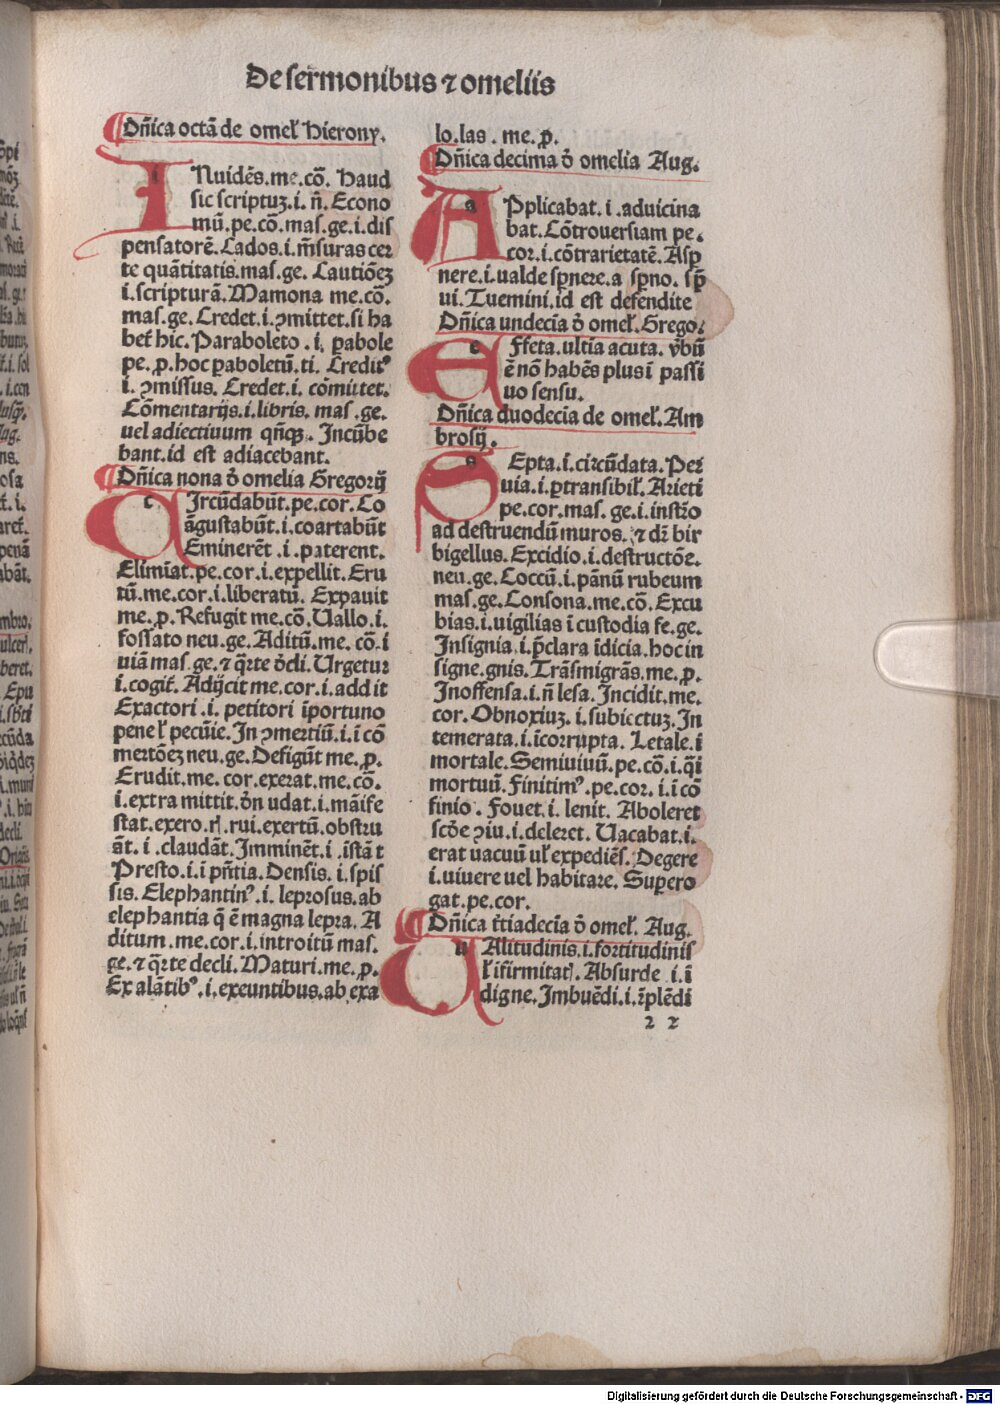 De sermonibus ⁊ omeliis
Dñica octã de omeł Hierony.
INuidẽs.me.cõ. Haud
sic scriptuꝫ.i. ñ. Econo
mũ.pe.cõ.mas.ge.i.dis
pensatorẽ. Cados.i.m̃suras cer
te quãtitatis.mas.ge. Cautiõeꝫ
.i.scripturã. Mamona me.cõ.
mas.ge. Credet.i.ꝯmittet.si ha
bet̃ hic. Paraboleto .i. ꝑabole
pe.ꝓ.hoc ꝑaboletũ.ti. Creditꝰ
i. ꝯmissus. Credet.i. cõmittet.
Cõmentarijs.i.libris. mas.ge.
uel adiectiuum qñqꝫ. Incũbe
bant.id est adiacebant.
Dñica nona õ omelia Gregorij
CIrcũdabũt.pe.cor. Co
ãgustabũt.i.coartabũt
Eminerẽt .i.paterent.
Elimĩat.pe.cor.i.expellit. Eru
tũ.me.cor.i.liberatũ. Expauit
me.ꝓ. Refugit me.cõ. Uallo.i.
fossato neu.ge. Aditũ.me. cõ.i
uiã mas.ge.⁊ q̃rte õcli. Urgetur
i.cogit̃. Adijcit me.cor.i.addit
Exactori.i. petitori ĩportuno
pene ł pecũie. In ꝯmertiũ.i.ĩ cõ
mertõeꝫ neu.ge. Defigũt me.ꝓ.
Erudit.me. cor.exerat.me.cõ.
i.extra mittit.õn udat.i.mãife
stat.exero.rꝭ.rui.exertũ.obstru
ãt. i .claudãt. Imminẽt.i.ĩstãt
Presto.i.ĩ pñtia. Densis.i.spis
sis. Elephantinꝰ.i. leprosus.ab
elephantia q̃ ẽ magna lepra. A
ditum.me.cor.i.introitũ mas.
ge.⁊ q̃rte decli. Maturi.me.ꝓ.
Ex alãtibꝰ.i.exeuntibus.ab exa
lo.las.me.ꝓ.
Dñica decima õ omelia Aug.
APplicabat.i.aduicina
bat. Cõtrouersiam pe.
cor.i.cõtrarietatẽ. Asꝑ
nere.i.ualde sꝑnere.a sꝑno. sp̃
ui. Tuemini.id est defendite
Dñica undecĩa õ omeł. Grego.
EFfeta.ultĩa acuta. ỽbũ
ẽ nõ habẽs plus ĩ passi
uo sensu.
Dñica duodecĩa de omeł. Am
brosij.
SEpta.i.circũdata. Per
uia.i.ꝑtransibił. Arieti
pe.cor.mas.ge.i.instr̃o
ad destruendũ muros.⁊ dr̃ bir
bigellus. Excidio.i.destructõe.
neu.ge. Coccũ.i.pãnũ rubeum
mas.ge. Consona.me.cõ. Excu
bias.i.uigilias ĩ custodia fe.ge.
Insignia.i.p̃clara ĩdicia.hoc in
signe.gnis. Trãsmigrãs.me.ꝓ.
Inoffensa.i.ñ lesa. Incidit.me.
cor. Obnoxiuꝫ.i.subiectuꝫ. In
temerata.i.ĩcorrupta. Letale.i
mortale. Semiuiuũ.pe.cõ.i.q̃i
mortuũ. Finitimꝰ.pe.cor.i.ĩ cõ
finio. Fouet.i. lenit. Aboleret
scõe ꝯiu.i.deleret. Uacabat.i.
erat uacuũ uł expediẽs. Degere
i.uiuere uel habitare. Supero
gat.pe.cor.
Dñica t̃tiadecĩa õ omeł. Aug.
UAlitudinis.i.fortitudinis
ł ĩfirmitatꝭ. Absurde .i.ĩ
digne. Imbuẽdi.i.ĩplẽdi
2 2
Digitalisierung gefördert durch die Deutsche Forschungsgemeinschaft - DFG